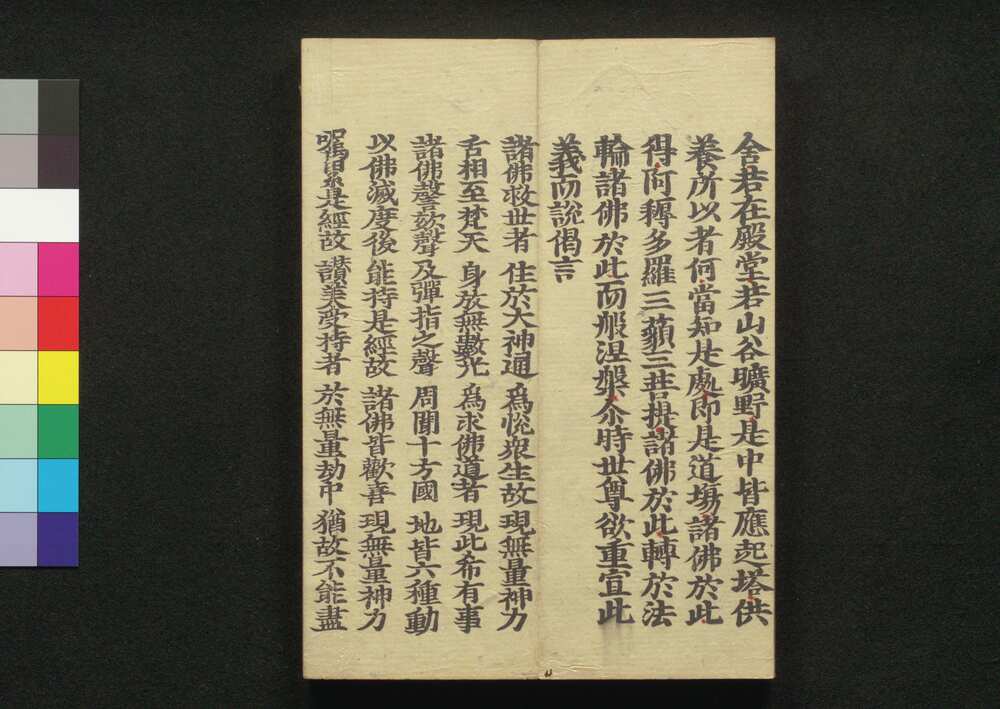 舍若在殿堂若山谷曠野是中皆應起塔供
養所以者何當知是處即是道場諸佛於此
得阿耨多羅三藐三菩提諸佛於此轉於法
輪諸佛於此而般涅槃尒時世尊欲重宣此
義而說偈言
諸佛救世者 住於大神通 為悅眾生故 現無量神力
舌相至梵天 身放無數光 為求佛道者 現此希有事
諸佛謦欬聲 及彈指之聲 周聞十方國 地皆六種動
以佛滅度後 能持是經故 諸佛皆歡喜 現無量神力
囑累是經故 讃美受持者 於無量劫中 猶故不能盡